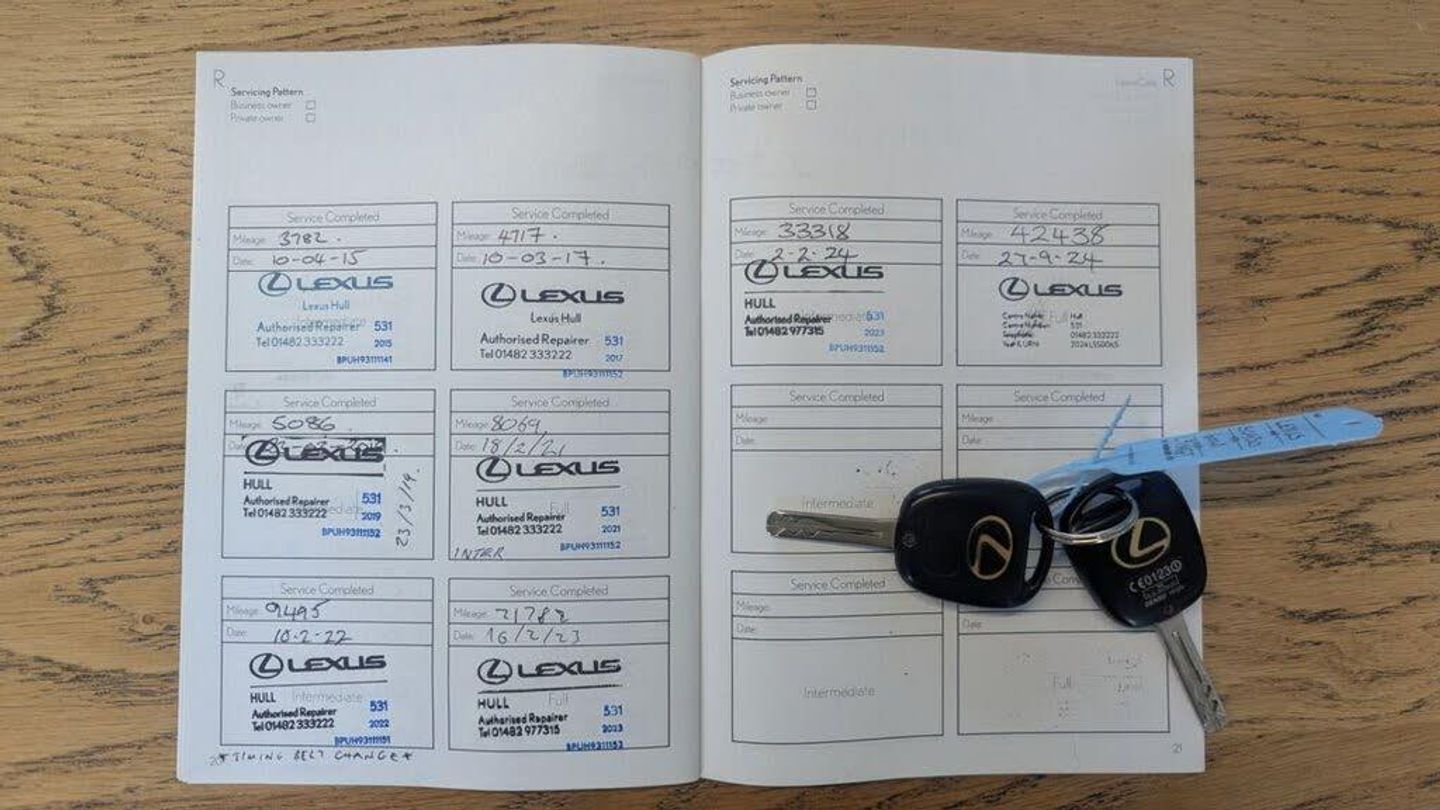 R
Servicing Pattern
Business owner
Private owner
Service Completed
Mileage: 3782.
Date: 10-04-15
LEXUS
Lexus Hull
Authorised Repairer 531
Tel 01482 333222 2015
BPUH93111141
Service Completed
Mileage: 4717.
Date: 10-03-17.
LEXUS
Lexus Hull
Authorised Repairer 531
Tel 01482 333222 2017
BPUH93111152
Service Completed
Mileage: 5086.
Date:
LEXUS
HULL
Authorised Repairer 531
Tel 01482 333222 2019
BPUH93111152
23/3/19.
Service Completed
Mileage: 8069
Date: 18/2/21
LEXUS
HULL
Full
Authorised Repairer 531
Tel 01482 333222 2021
BPUH93111152
INTER
Service Completed
Mileage: 9495
Date: 10-2-22
LEXUS
HULL Intermediate
Authorised Repairer 531
Tel 01482 333222 2022
BPUH93111151
Service Completed
Mileage: 21782
Date: 16/2/23
LEXUS
HULL Full
Authorised Repairer 531
Tel 01482 977315 2023
BPUH93111152
20
*TIMING BELT CHANGE*
R
Servicing Pattern
Business owner
Private owner
Service Completed
Mileage: 33318
Date: 2-2-24
LEXUS
HULL
Authorised Repairer 531
Tel 01482 977315 2023
BPUH93111152
Service Completed
Mileage: 42438
Date: 27-9-24
LEXUS
Full
Centre Name: Hull
Centre Number: 531
Telephone: 01482 333222
Service Completed
Mileage:
Date:
Intermediate
Service Completed
Mileage:
Date:
Service Completed
Mileage:
Date:
Intermediate
Service
Mileage:
Date:
Full
21
LEXUS
CE0123